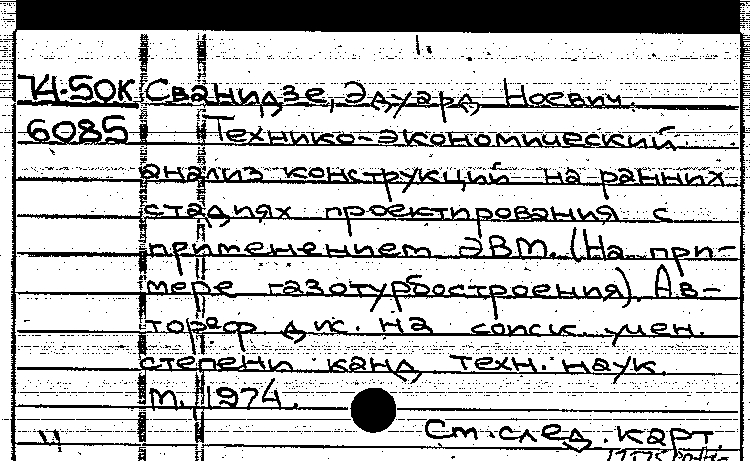 1.
74-50К Сванидзе, Эдуард Ноевич.
6085 Технико-экономический
анализ конструкций на ранних
стадиях проектирования с
применением ЭВМ. (На при-
мере газотурбостроения). Ав-
тореф дис. на соиск. учен.
степени канд техн. наук.
М. 1974.
См. след. карт.